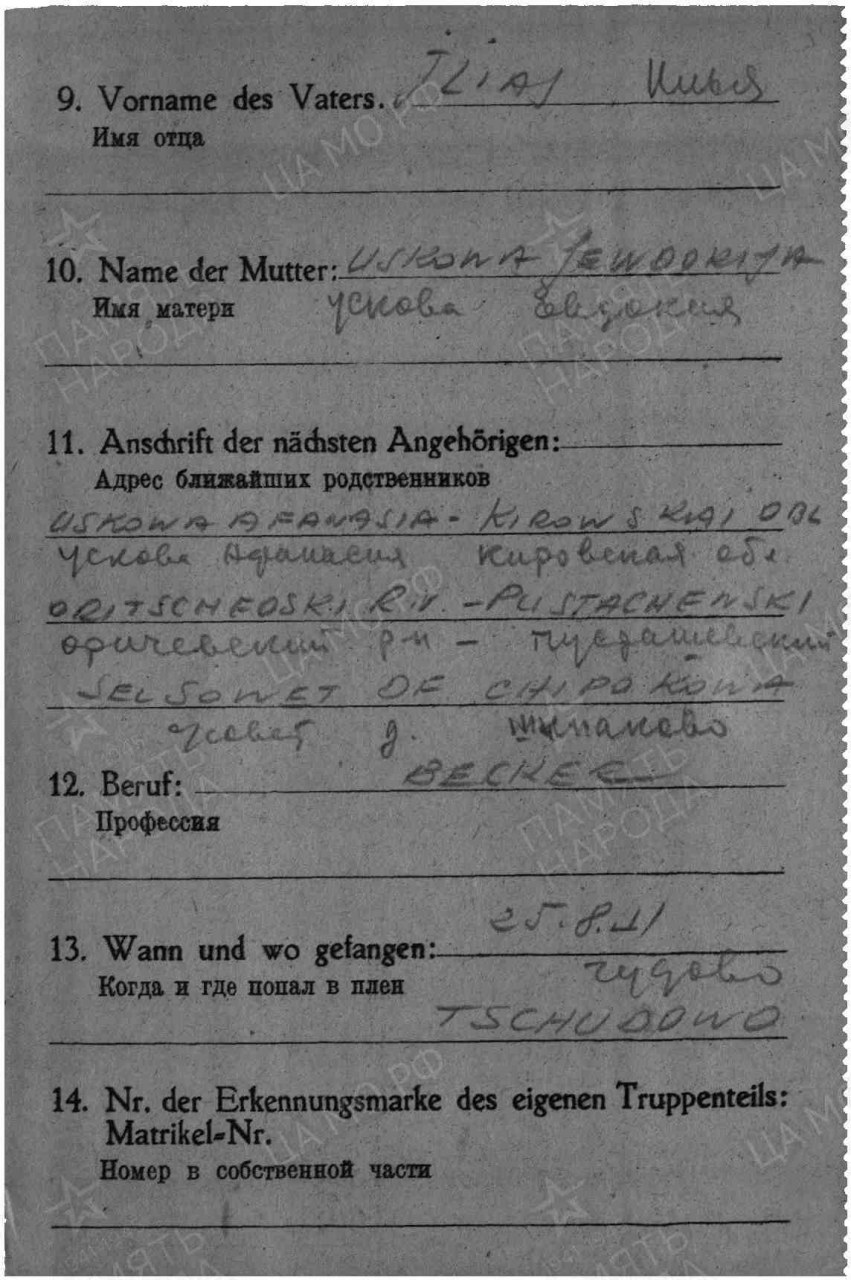 9. Vorname des Vaters. ILIAJ Илья
Имя отца
10. Name der Mutter: USKOWA JEWDOKIJA
Имя матери Ускова Евдокия
11. Anschrift der nächsten Angehörigen:
Адрес ближайших родственников
USKOWA AFANASIA - KIROWSKAJ OBL
Ускова Афанасия Кировская обл
ORITSCHEOSKI R.N. - PUSTACHENSKI
оричевский р-н - пусташевский
SELSOWET DE CHIPOKOWA
д.
12. Beruf: BECKER
Профессия
13. Wann und wo gefangen: 25.8.41
Когда и где попал в плен чудово
TSCHUDOWO
14. Nr. der Erkennungsmarke des eigenen Truppenteils:
Matrikel-Nr.
Номер в собственной части
ЦА МО РФ
ПАМЯТЬ
НАРОДА